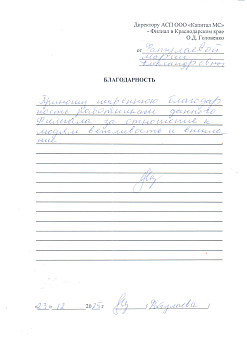 Директору АСП ООО «Капитал МС»
- Филиал в Краснодарском крае
О.Д. Головенко
от
Марии
Александровны
БЛАГОДАРНОСТЬ
Приношу искреннюю благодар
ность работникам данного
Филиала за отношение к
людям вежливость и внима
ние
«23» 12 2025г